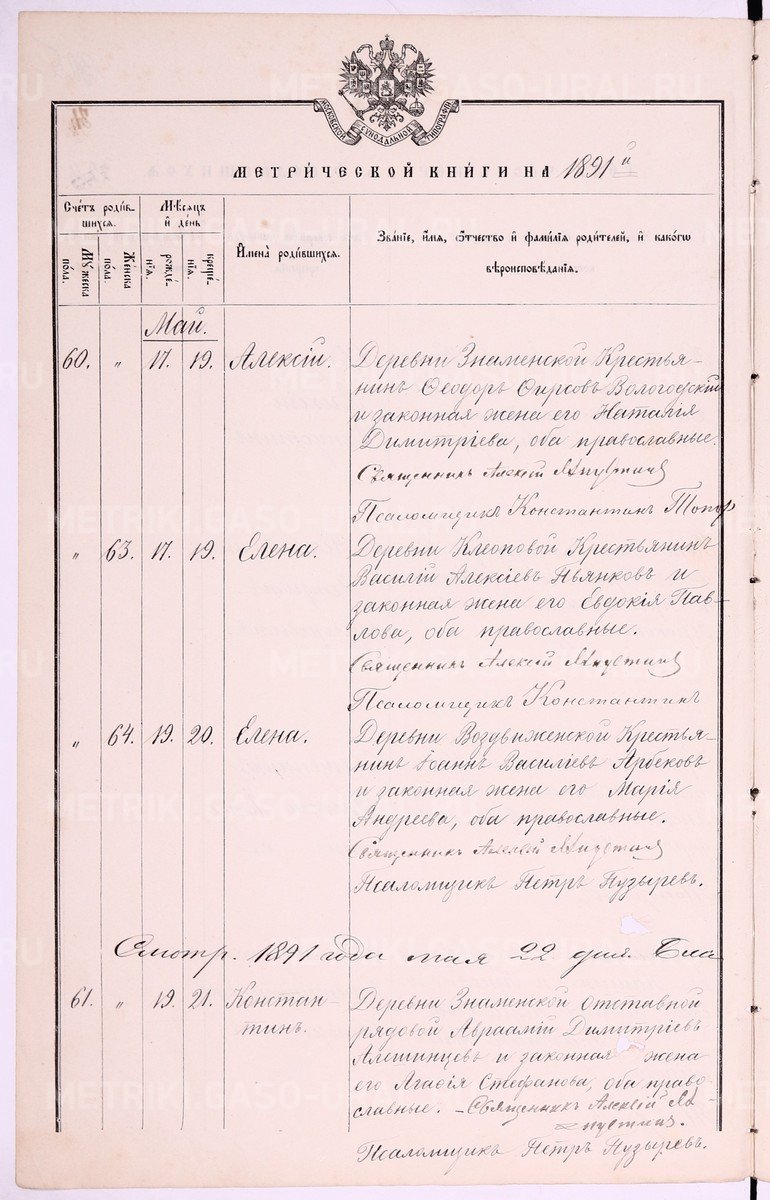 МОСКОВСКОЙ СУНОДАЛЬНОЙ ТИПОГРАФІИ
МЕТРИ́ЧЕСКОЙ КНИ́ГИ НА 1891 й
Сче́тъ роди́в-
шихся.
Мѣсяцъ
и҆ де́нь
И҆мена̀ роди́вшихся.
Зва́нїе, и҆́мѧ, ѻ҆́тчество и҆ фами́лїѧ роди́телей, и҆ како́гѡ
вѣроисповѣ́данїѧ.
Мꙋ́жеска
по́ла.
Же́нска
по́ла.
рожде́-
нїѧ.
креще́-
нїѧ.
Май.
60. " 17. 19. Алексій. Деревни Знаменской Крестья-
нинъ Ѳеодоръ Ѳирсовъ Вологодскій
и законная жена его Наталія
Димитріева, оба православные.
Священникъ Алексій
Псаломщикъ Константинъ Топор
" 63. 17. 19. Елена. Деревни Клеоповой Крестьянинъ
Василій Алексіевъ Пьянковъ и
законная жена его Евдокія Пав-
лова, оба православные.
Священникъ Алексій
Псаломщикъ Константинъ
" 64. 19. 20. Елена. Деревни Воздвиженской Крестья-
нинъ Іоаннъ Василіевъ Арбековъ
и законная жена его Марія
Андреева, оба православные.
Священникъ Алексій
Псаломщикъ Петръ Пузыревъ.
Смотр. 1891 года мая 22 дня. Бла
61. " 19. 21. Констан- Деревни Знаменской отставной
тинъ. рядовой Авраамій Димитріевъ
Алешинцевъ и законная жена
его Агафія Стефанова, оба право-
славные. – Священникъ Алексій
Псаломщикъ Петръ Пузыревъ.